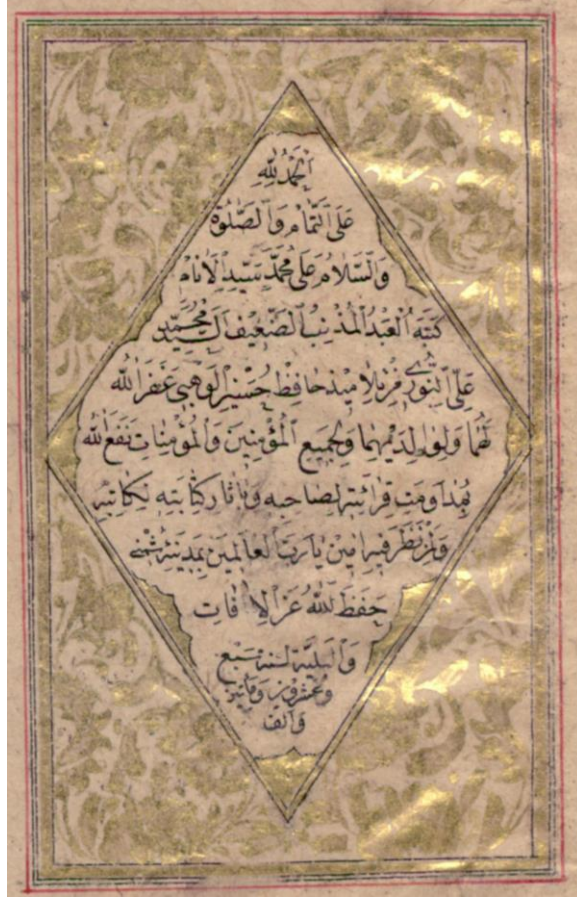 الْحَمْدُ لِلّٰهِ
عَلَى التَّمَامْ وَالصَّلٰوةُ
وَالسَّلَامُ عَلَى مُحَمَّدٍ سَيِّدِ الْاَنَامْ
كَتَبَهُ الْعَبْدُ الْمُذْنِبُ الضَّعِيفُ السَّيِّدْ مُحَمَّدْ
النُّورِي مِنْ تَلَامِيذِ حَافِظْ حُسَيْنِ الْوَهْبِي غَفَرَ اللّٰهُ
لَهُمَا وَلِوَالِدَيْهِمَا وَلِجَمِيعِ الْمُؤْمِنِينَ وَالْمُؤْمِنَاتِ نَفَعَ اللّٰهُ
بِمُدَاوَمَتِ قِرَائَتِهِ لِصَاحِبِهِ وَبِاٰثَارِ كِتَابَتِهِ لِكَاتِبِهِ
وَلِمَنْ نَظَرَ فِيهِ اٰمِينَ يَا رَبَّ الْعَالَمِينَ بِمَدِينَةِ شُمْنِي
حَفِظَ اللّٰهُ عَنِ الْاٰفَاتِ
وَالْبَلِيَّةِ لِسَنَةِ سَبْعٍ
وَعِشْرِينَ وَمِأَتَيْنِ
وَاَلْفْ